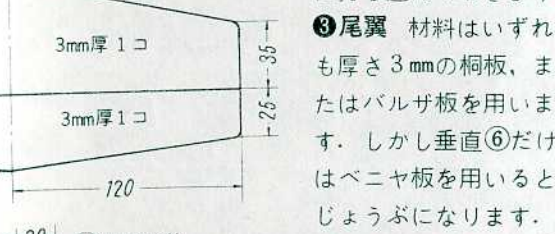 3mm厚1コ
35
3mm厚1コ
25
120
❸尾翼 材料はいずれ
も厚さ3mmの桐板，ま
たはバルザ板を用いま
す．しかし垂直⑥だけ
はベニヤ板を用いると
じょうぶになります．